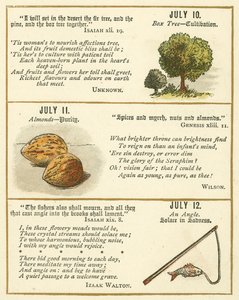 "I will set in the desert the fir tree, and the
pine, and the box tree together."
ISAIAH xli. 19.
'Tis woman's to nourish affections tree,
And its fruit domestic bliss shall be;
'Tis her's to culture with patient toil
Each heaven-born plant in the heart's
deep soil;
And fruits and flowers her toil shall greet,
Richest flavours and odours on earth
that meet.
UNKNOWN.
JULY 10.
Box Tree—Cultivation.
JULY 11.
Almonds—Purity.
"Spices and myrrh, nuts and almonds."
GENESIS xliii. 11.
What brighter throne can brightness find
To reign on than an infant's mind,
Ere sin destroy, or error dim
The glory of the Seraphim?
Oh! vision fair; that I could be
Again as young, as pure, as thee!
WILSON.
"The fishers also shall mourn, and all they
that cast angle into the brooks shall lament."
ISAIAH xix. 8.
I, in these flowery meads would be,
These crystal streams should solace me;
To whose harmonious, bubbling noise,
I with my angle would rejoice.
* * * *
There bid good morning to each day,
There meditate my time away;
And angle on: and beg to have
A quiet passage to a welcome grave.
IZAAK WALTON.
JULY 12.
An Angle.
Solace in Sadness.